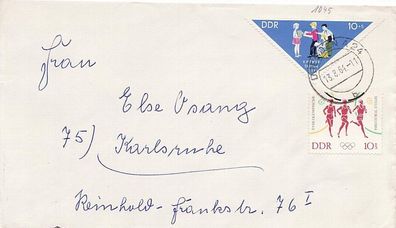 1045
DDR 10+5
24
13.8.64-11
b
Frau
Else Osang
75) Karlsruhe
Reinhold-Frankstr. 76 I
DDR 10+5